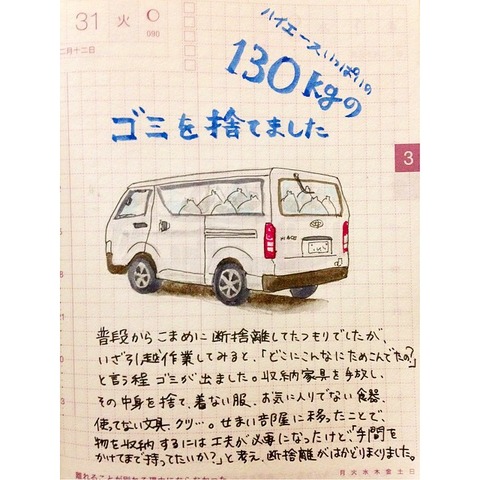 31 火
090
二月十二日
ハイエースいっぱいの
130kgの
ゴミを捨てました
3
HIACE
普段からこまめに断捨離してたつもりでしたが、
いざ引越作業してみると、「どこにこんなにためこんでたの?」
と言う程ゴミが出ました。収納家具を手放し、
その中身を捨て、着ない服、お気に入りでない食器、
使てない文具、クツ…。せまい部屋に移ったことで、
物を収納するには工夫が必要になったけど、「手間を
かけてまで持ってたいか?」と考え、断捨離がはかどりまくりました。
月 火 水 木 金 土 日